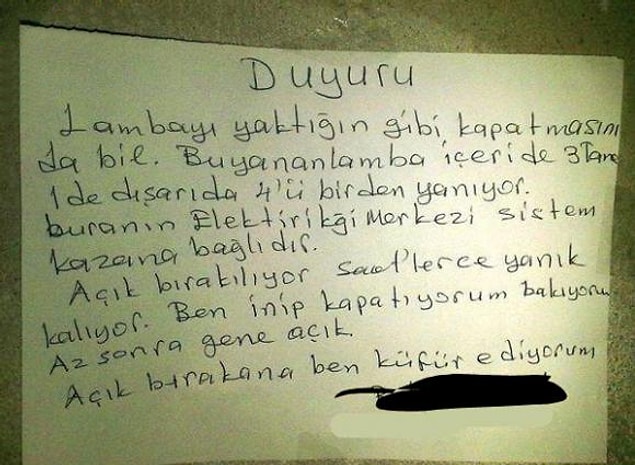 Duyuru
Lambayı yaktığın gibi kapatmasını
da bil. Bu yanan lamba içeride 3 Tane
1 de dışarıda 4'ü birden yanıyor.
buranın Elektirikği Merkezi sistem
kazana bağlıdır.
Açık bırakılıyor saat'lerce yanık
kalıyor. Ben inip kapatıyorum bakıyorum
Az sonra gene açık.
Açık bırakana ben küfür ediyorum